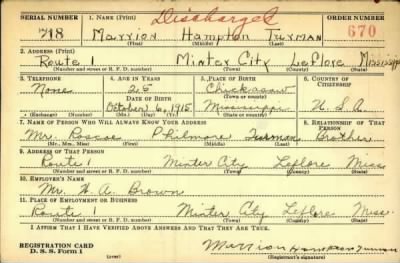 SERIAL NUMBER 1. NAME (Print) Discharged ORDER NUMBER
718 Marrion Hampton Turman 670
(First) (Middle) (Last)
2. ADDRESS (Print)
Route 1 Minter City Leflore Mississippi
(Number and street or R. F. D. number) (Town) (County) (State)
3. TELEPHONE 4. AGE IN YEARS 5. PLACE OF BIRTH 6. COUNTRY OF CITIZENSHIP
None 25 Chickasaw
DATE OF BIRTH (Town or county)
October 6, 1915 Mississippi U. S. A.
(Exchange) (Number) (Mo.) (Day) (Yr.) (State or country)
7. NAME OF PERSON WHO WILL ALWAYS KNOW YOUR ADDRESS 8. RELATIONSHIP OF THAT PERSON
Mr. Roscoe Philmore Turman Brother
(Mr., Mrs., Miss) (First) (Middle) (Last)
9. ADDRESS OF THAT PERSON
Route 1 Minter City Leflore Miss
(Number and street or R. F. D. number) (Town) (County) (State)
10. EMPLOYER'S NAME
Mr. H. A. Brown
11. PLACE OF EMPLOYMENT OR BUSINESS
Route 1 Minter City Leflore Miss.
(Number and street or R. F. D. number) (Town) (County) (State)
I AFFIRM THAT I HAVE VERIFIED ABOVE ANSWERS AND THAT THEY ARE TRUE.
REGISTRATION CARD
D. S. S. Form 1 Marrion Hampton Turman
(Registrant's signature)